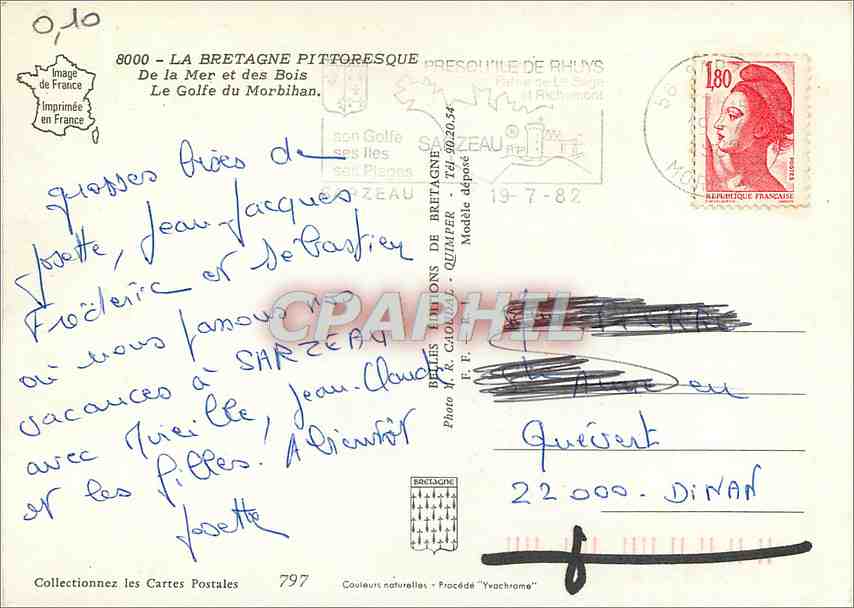 0,10
8000 - LA BRETAGNE PITTORESQUE
De la Mer et des Bois
Le Golfe du Morbihan.
Image
de France
Imprimée
en France
PRESQU'ILE DE RHUYS
Patrie de Le Sage
et Richemont
son Golfe
ses Iles
ses Plages
SARZEAU
SARZEAU
19-7-82
56
1,80
POSTES
REPUBLIQUE FRANÇAISE
grosses bises de
Josette, Jean-Jacques
Frédéric et Sébastien
où nous passons nos
vacances à SARZEAU
avec Mireille, Jean-Claude
et les filles. A bientôt
Josette
BELLES EDITIONS DE BRETAGNE
Photo H. R. CAOUDAL - QUIMPER - Tél. 90.20.54
Modèle déposé
CPAPHIL
en
Quévert
22000 - DINAN
BRETAGNE
Collectionnez les Cartes Postales
797
Couleurs naturelles - Procédé "Yvachrome"